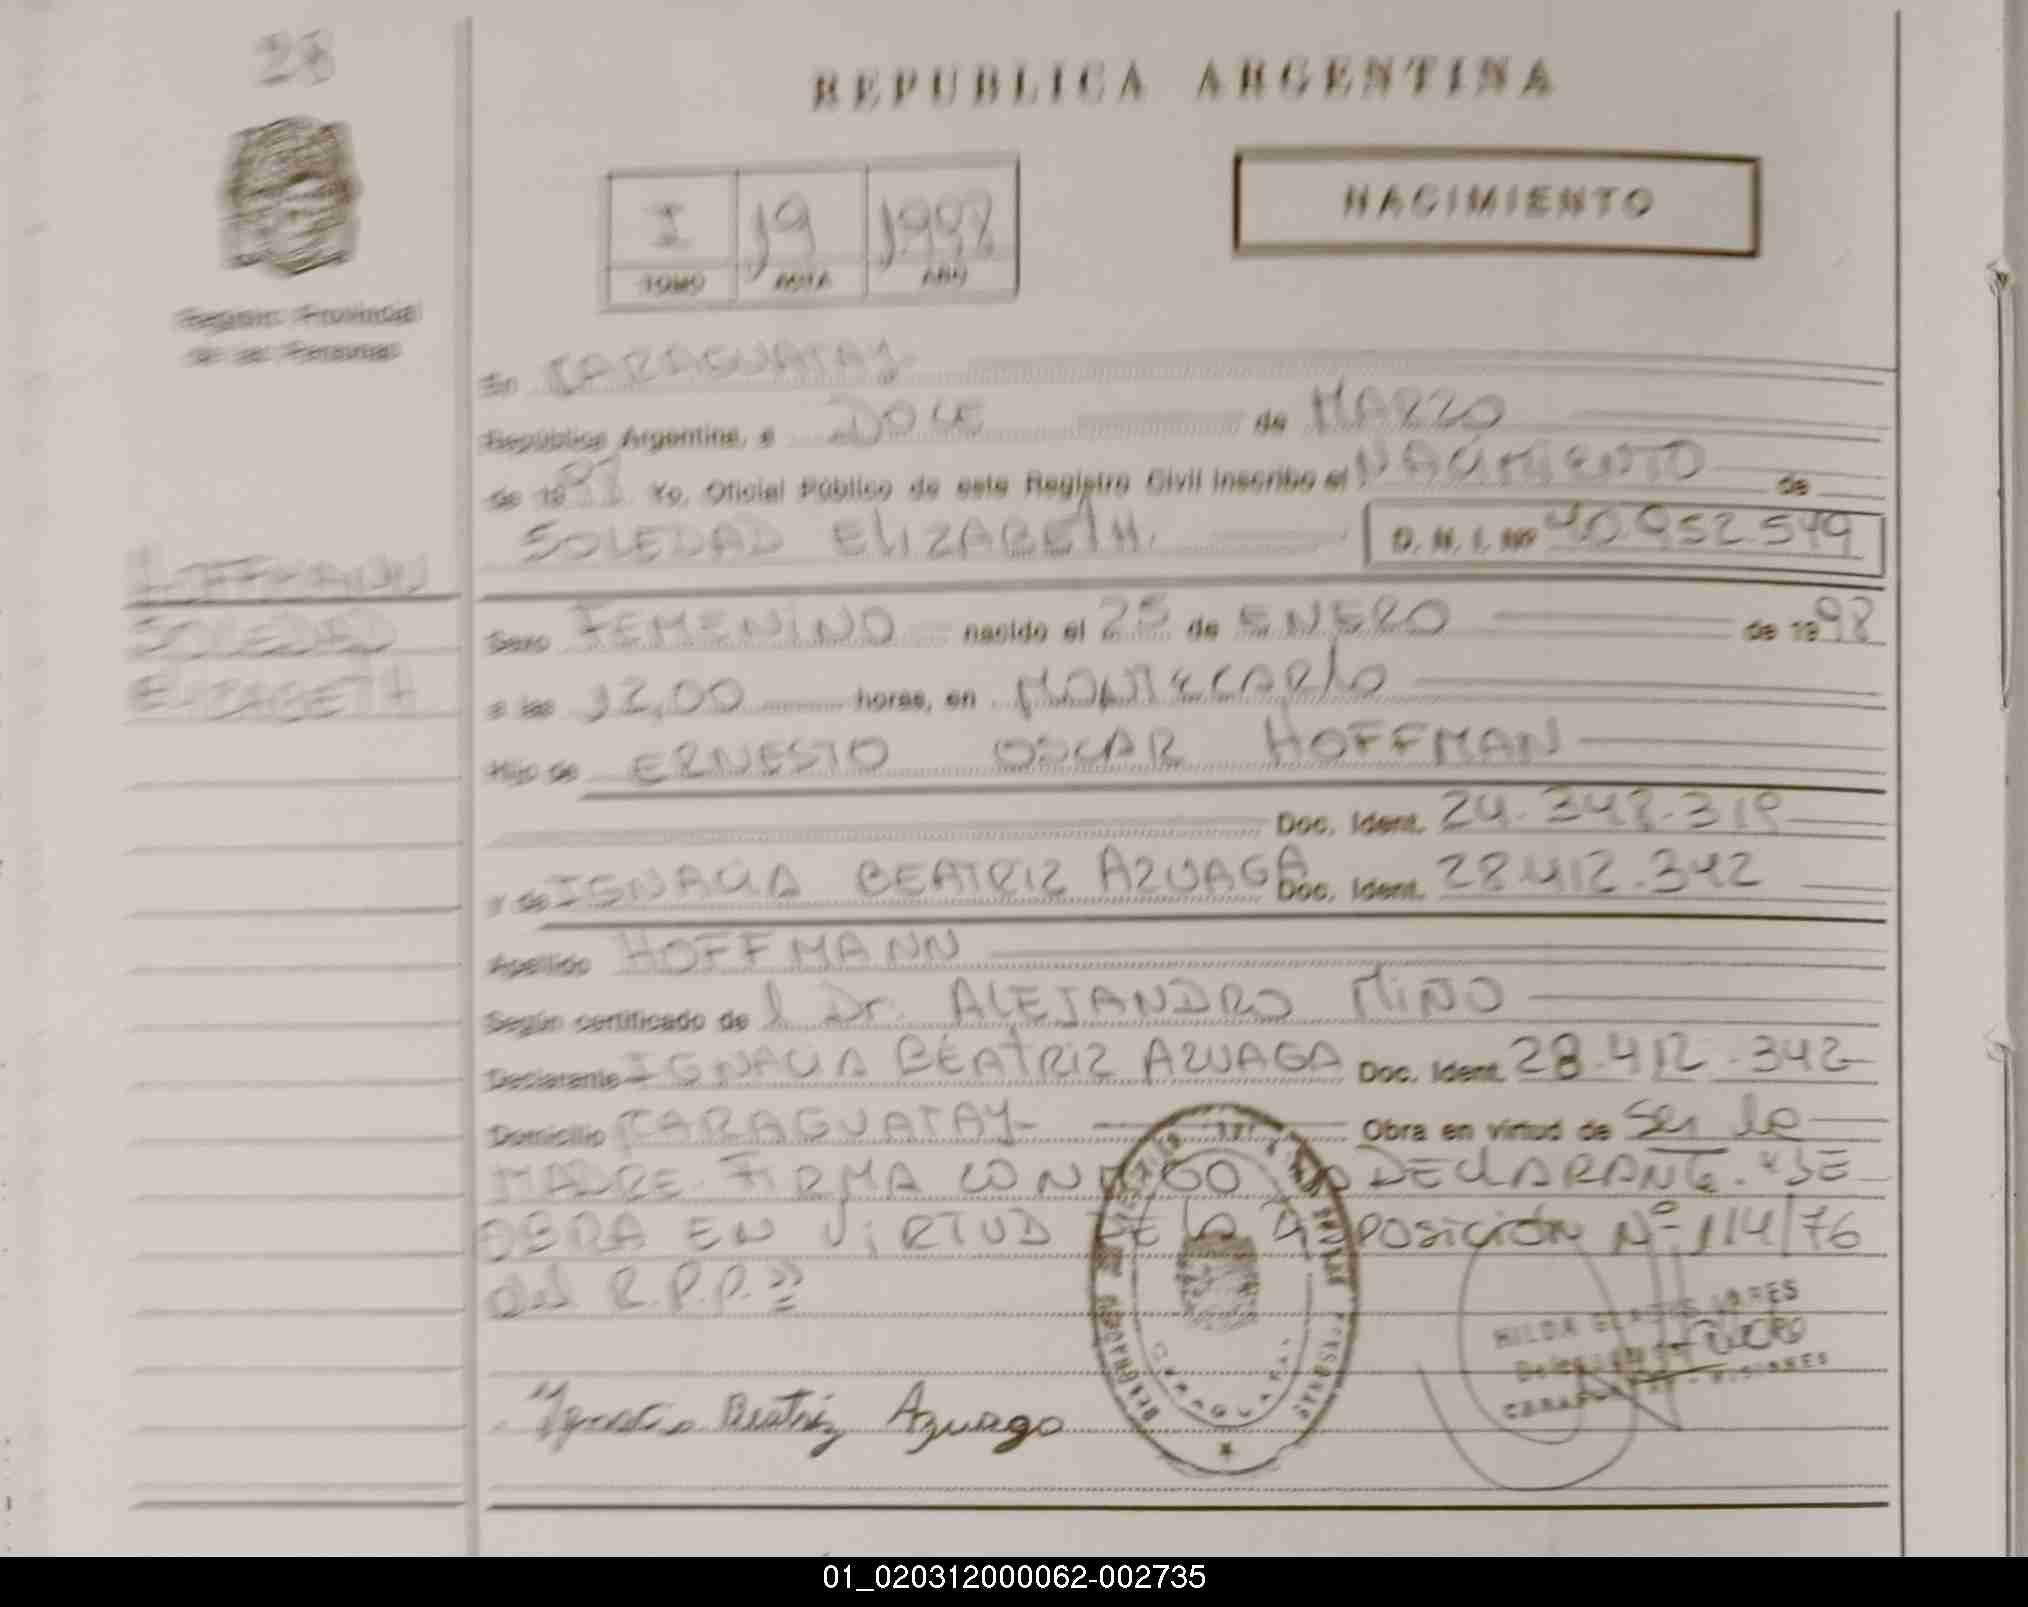 28
REPUBLICA ARGENTINA
NACIMIENTO
I 19 1998
TOMO ACTA AÑO
Registro Provincial
de las Personas
En CARAGUATAY
República Argentina, a DOCE de MARZO
de 1998 Yo, Oficial Público de este Registro Civil inscribo el NACIMIENTO de
SOLEDAD ELIZABETH. D. N. I. Nº 40.952.549
HOFFMANN
SOLEDAD
ELIZABETH
Sexo FEMENINO nacido el 25 de ENERO de 1998
a las 12,00 horas, en MONTECARLO
Hijo de ERNESTO OSCAR HOFFMAN
Doc. Ident. 24.348.319
y de IGNACIA BEATRIZ AZUAGA Doc. Ident. 28.412.342
Apellido HOFFMANN
Según certificado de l Dr. ALEJANDRO MIÑO
Declarante IGNACIA BEATRIZ AZUAGA Doc. Ident. 28.412.342
Domicilio CARAGUATAY Obra en virtud de ser la
MADRE. FIRMA CONMIGO LA DECLARANTE. "SE
OBRA EN VIRTUD DE LA DISPOSICIÓN Nº 114/76
del R.P.P."
HILDA GLADYS
CARAGUATAY - MISIONES
CARAGUATAY
Ignacia Beatriz Azuaga
01_020312000062-002735